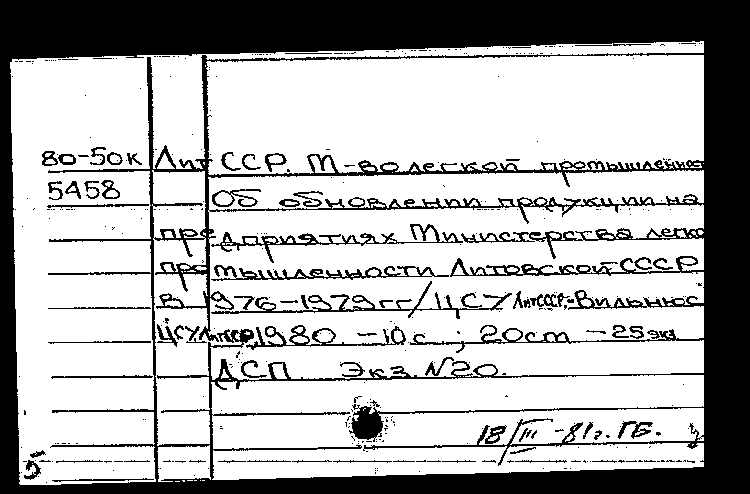 80-50к Лит ССР. М-во легкой промышленност
5458 Об обновлении продукции на
предприятиях Министерства легко
промышленности Литовской ССР
в 1976-1979 гг/ЦСУ ЛитССР.-Вильнюс
ЦСУ ЛитССР, 1980. -10 с ; 20 cm -25 экз
ДСП Экз. №20.
18/III-81г. ГБ.
5